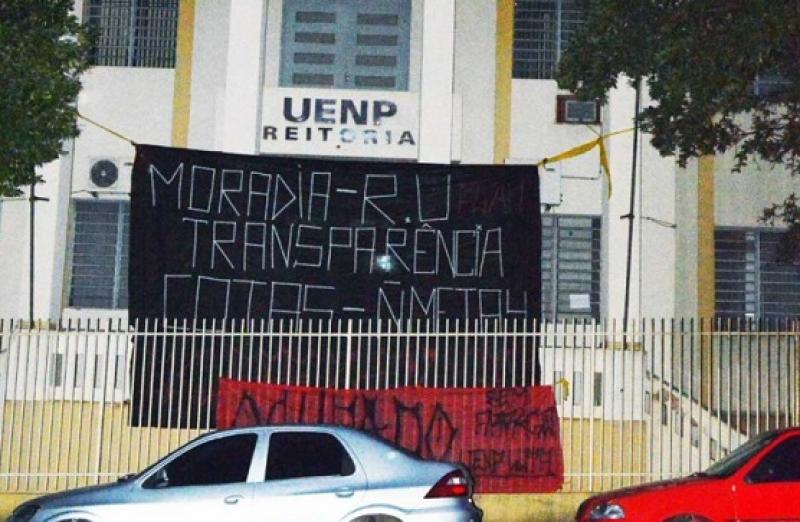 UENP
REITORIA
MORADIA-R.U
TRANSPARÊNCIA
COTAS-Ñ META4
OCUPADO
SEM
UENP